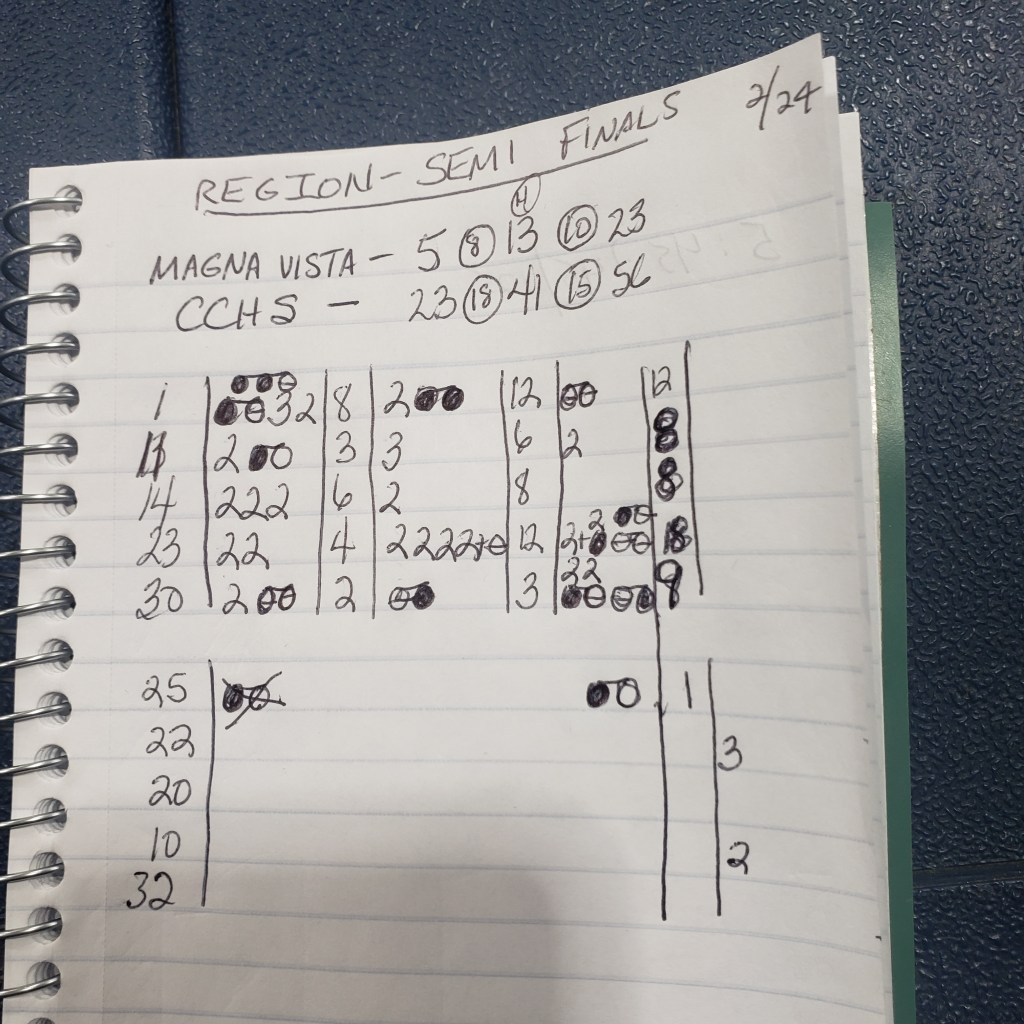 REGION-SEMI FINALS 2/24
H
MAGNA VISTA - 5 8 13 10 23
CCHS - 23 18 41 15 56
1 32 8 2 12 12
11 2 3 3 6 2 8
14 222 6 2 8 8
2
23 22 4 2222+ 12 2+ 18
22
30 2 2 3 9
25 1
22 3
20
10 2
32